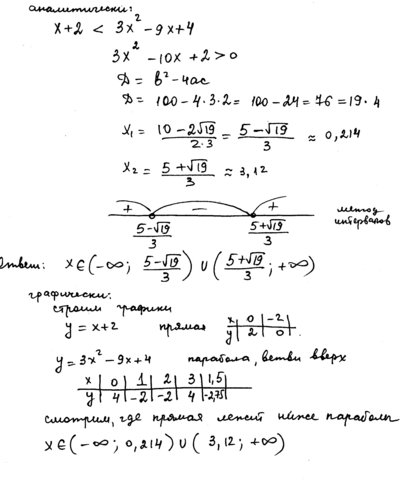 аналитически:
x+2 < 3x² -9x+4
3x² -10x +2>0
D = b² -4ac
D= 100 -4·3·2= 100 -24=76 =19·4
x₁ = (10 -2√19)/(2·3) = (5-√19)/3 ≈ 0,214
x₂ = (5+√19)/3 ≈ 3,12
+ − + метод
(5-√19)/3 (5+√19)/3 интервалов
Ответ: x∈(-∞; (5-√19)/3) ∪ ((5+√19)/3; +∞)
графически:
строим графики
y = x+2 прямая x | 0 | -2
y | 2 | 0
y=3x² -9x+4 парабола, ветви вверх
x | 0 | 1 | 2 | 3 | 1,5
y | 4 | -2 | -2 | 4 | -2,75
смотрим, где прямая лежит ниже параболы
x∈(-∞; 0,214) ∪ (3,12; +∞)